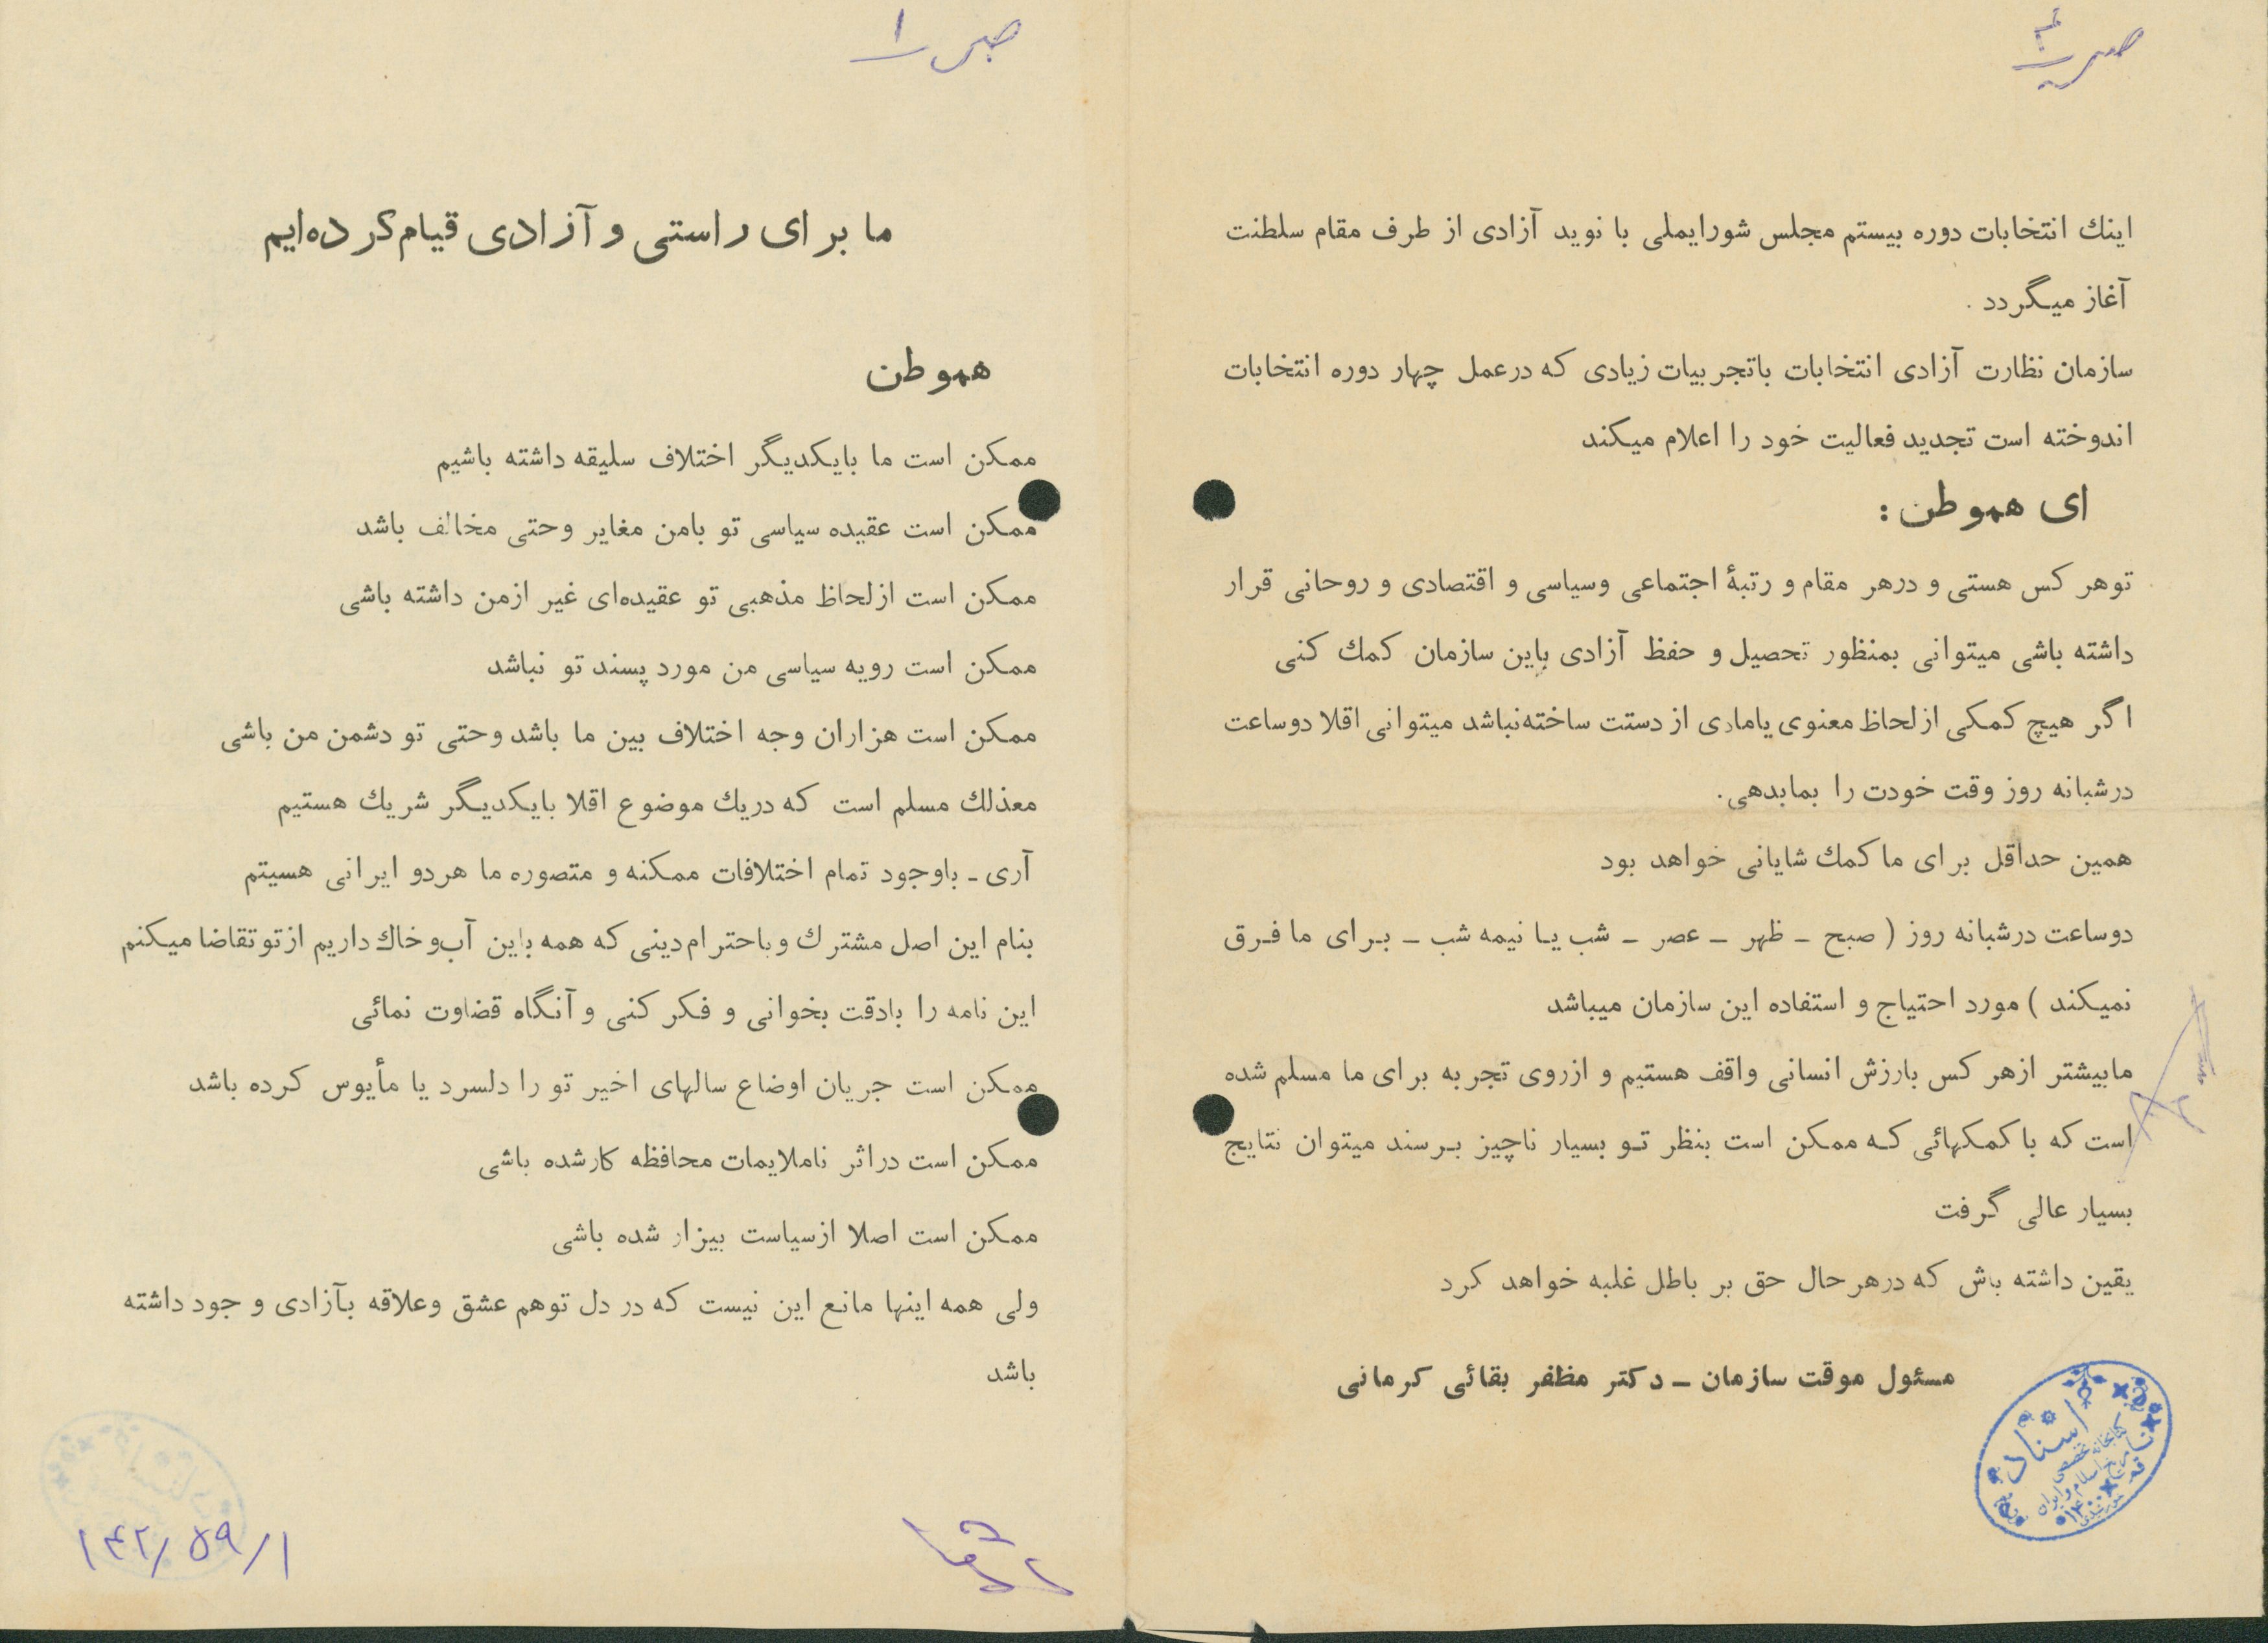 ص ۱
ما برای راستی و آزادی قیام کرده‌ایم
هموطن
ممکن است ما بایکدیگر اختلاف سلیقه داشته باشیم
ممکن است عقیده سیاسی تو بامن مغایر وحتی مخالف باشد
ممکن است ازلحاظ مذهبی تو عقیده‌ای غیر ازمن داشته باشی
ممکن است رویه سیاسی من مورد پسند تو نباشد
ممکن است هزاران وجه اختلاف بین ما باشد وحتی تو دشمن من باشی
معذلك مسلم است که دریك موضوع اقلا بایکدیگر شریك هستیم
آری ـ باوجود تمام اختلافات ممکنه و متصوره ما هردو ایرانی هسیتم
بنام این اصل مشترك وباحترام‌دینی که همه باین آب‌وخاك داریم ازتوتقاضا میکنم
این نامه را بادقت بخوانی و فکر کنی و آنگاه قضاوت نمائی
ممکن است جریان اوضاع سالهای اخیر تو را دلسرد یا مأیوس کرده باشد
ممکن است دراثر ناملایمات محافظه کارشده باشی
ممکن است اصلا ازسیاست بیزار شده باشی
ولی همه اینها مانع این نیست که در دل توهم عشق وعلاقه بآزادی و جود داشته
باشد
۱۴۲/۵۹/۱
ص ۴
اینك انتخابات دوره بیستم مجلس شورایملی با نوید آزادی از طرف مقام سلطنت
آغاز میگردد .
سازمان نظارت آزادی انتخابات باتجربیات زیادی که درعمل چهار دوره انتخابات
اندوخته است تجدید فعالیت خود را اعلام میکند
ای هموطن :
توهر کس هستی و درهر مقام و رتبهٔ اجتماعی وسیاسی و اقتصادی و روحانی قرار
داشته باشی میتوانی بمنظور تحصیل و حفظ آزادی باین سازمان کمك کنی
اگر هیچ کمکی ازلحاظ معنوی یامادی از دستت ساخته‌نباشد میتوانی اقلا دوساعت
درشبانه روز وقت خودت را بمابدهی.
همین حداقل برای ما کمك شایانی خواهد بود
دوساعت درشبانه روز ( صبح ـ ظهر ـ عصر ـ شب یـا نیمه شب ـ بـرای ما فـرق
نمیکند ) مورد احتیاج و استفاده این سازمان میباشد
مابیشتر ازهر کس بارزش انسانی واقف هستیم و ازروی تجربه برای ما مسلم شده
است که با کمکهائی کـه ممکن است بنظر تـو بسیار ناچیز بـرسند میتوان نتایج
بسیار عالی گرفت
یقین داشته باش که درهرحال حق بر باطل غلبه خواهد کرد
مسئول موقت سازمان ـ دکتر مظفر بقائی کرمانی
اسناد
کتابخانه تخصصی
تاریخ اسلام و ایران
قم